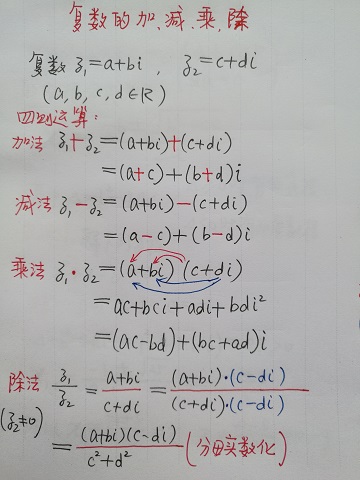 复数的加、减、乘、除
复数 z₁=a+bi , z₂=c+di
(a,b,c,d∈R)
四则运算:
加法 z₁+z₂=(a+bi)+(c+di)
=(a+c)+(b+d)i
减法 z₁-z₂=(a+bi)-(c+di)
=(a-c)+(b-d)i
乘法 z₁·z₂=(a+bi)(c+di)
=ac+bci+adi+bdi²
=(ac-bd)+(bc+ad)i
除法 z₁/z₂=(a+bi)/(c+di)=(a+bi)·(c-di)/(c+di)·(c-di)
(z₂≠0) =(a+bi)(c-di)/c²+d² (分母实数化)